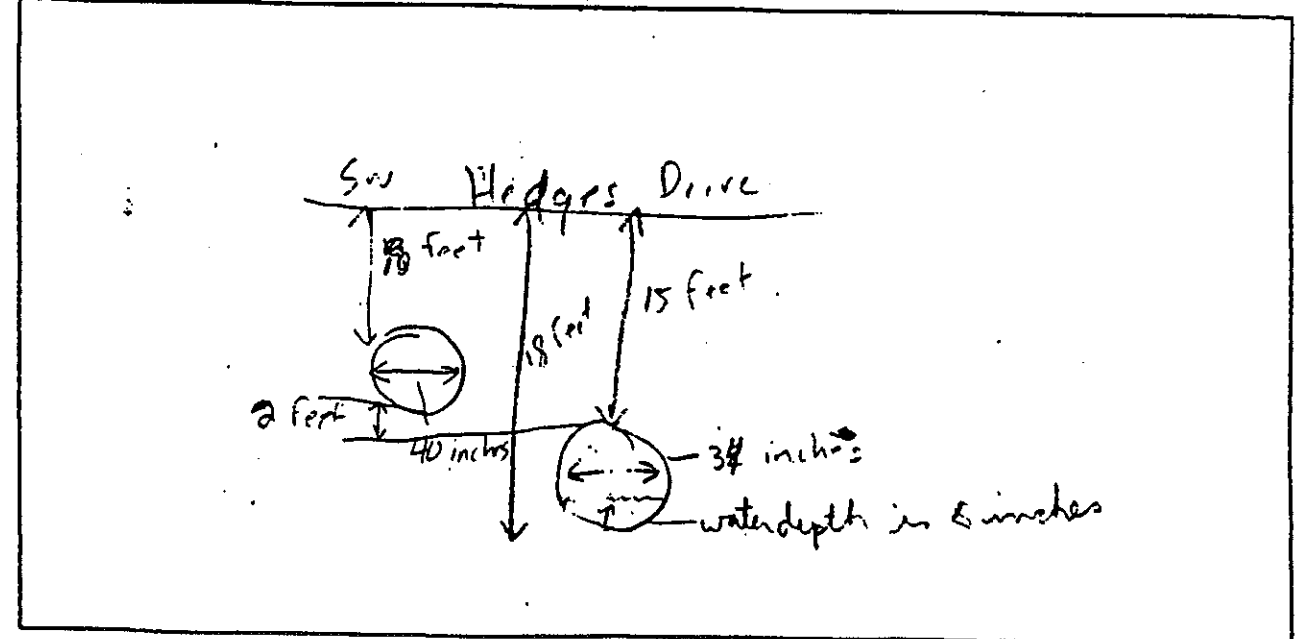 SW Hedges Drive
feet
15 feet
18 feet
2 feet
40 inches
inches
water depth is inches